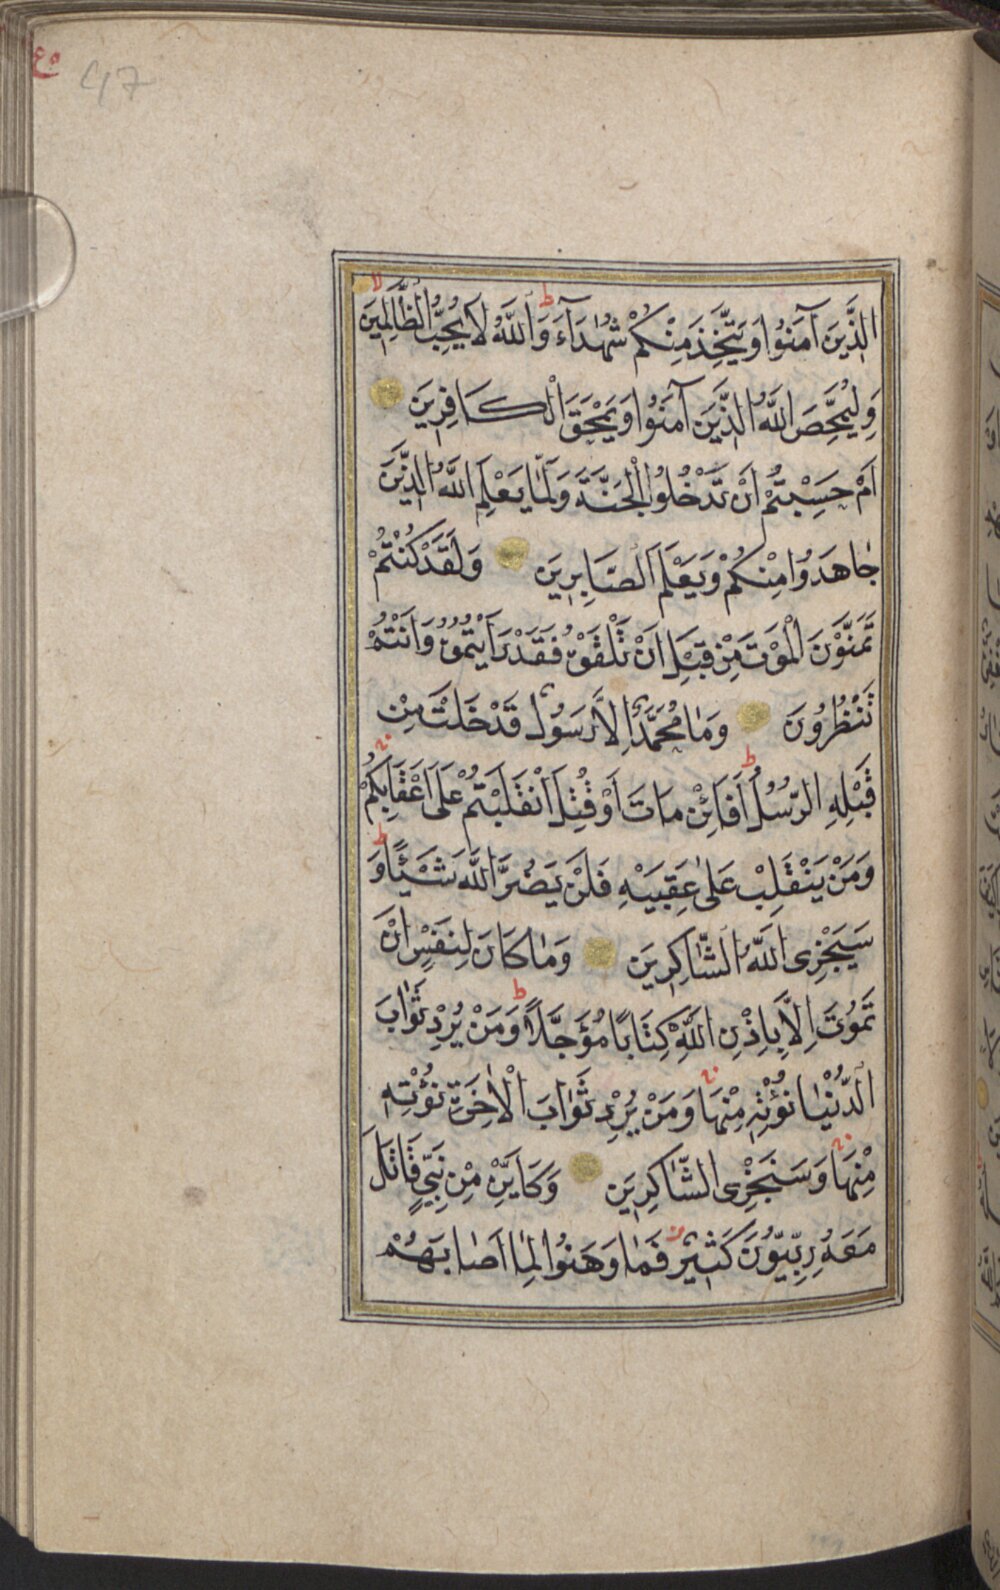 ٤٥
47
الَّذَّيَنَ آمَنُوا وَيَتَّخِذَ مِنْكُمْ شُهَدَآءَ ط وَاللَّهُ لَا يُحِبُّ الظَّالِمِينَ لا
وَلِيُمَحِّصَ اللَّهُ الَّذَّيَنَ آمَنُوا وَيَمْحَقَ الْكَافِرِينَ
اَمْ حَسِبْتُمْ اَنْ تَدْخُلُوا الْجَنَّةَ وَلَمَّا يَعْلَمِ اللَّهُ الَّذِينَ
جَاهَدُوا مِنْكُمْ وَيَعْلَمَ الصَّابِرِينَ وَلَقَدْ كُنْتُمْ
تَمَنَّوْنَ الْمَوْتَ مِنْ قَبْلِ اَنْ تَلْقَوْهُ فَقَدْ رَاَيْتُمُوهُ وَاَنْتُمْ
تَنْظُرُونَ وَمَا مُحَمَّدٌ اِلَّا رَسُولٌ قَدْ خَلَتْ مِنْ
قَبْلِهِ الرُّسُلُ ط اَفَائِنْ مَاتَ اَوْ قُتِلَ انْقَلَبْتُمْ عَلَى اَعْقَابِكُمْ
وَمَنْ يَنْقَلِبْ عَلَى عَقِبَيْهِ فَلَنْ يَضُرَّ اللَّهَ شَيْئًا ط وَ
سَيَجْزِى اللَّهُ الشَّاكِرِينَ وَمَا كَانَ لِنَفْسٍ اَنْ
تَمُوتَ اِلَّا بِاِذْنِ اللَّهِ كِتَابًا مُؤَجَّلًا ط وَمَنْ يُرِدْ ثَوَابَ
الدُّنْيَا نُؤْتِهِ مِنْهَا وَمَنْ يُرِدْ ثَوَابَ الْاٰخِرَةِ نُؤْتِهِ
مِنْهَا وَسَنَجْزِى الشَّاكِرِينَ وَكَاَيِّنْ مِنْ نَبِيٍّ قَاتَلَ
مَعَهُ رِبِّيُّونَ كَثِيرٌ فَمَا وَهَنُوا لِمَا اَصَابَهُمْ